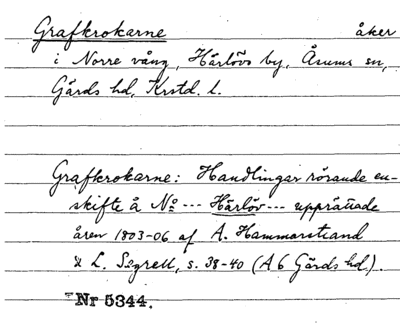 Grafkrokarne åker
i Norre vång, Härlövs by, Åsums sn,
Gärds hd, Krstd. l.
Grafkrokarne: Handlingar rörande en-
skifte å No --- Härlöv --- upprättade
åren 1803-06 af A. Hammarstrand
& L. Sågrell, s. 38-40 (A 6 Gärds hd.).
Nr 5344.